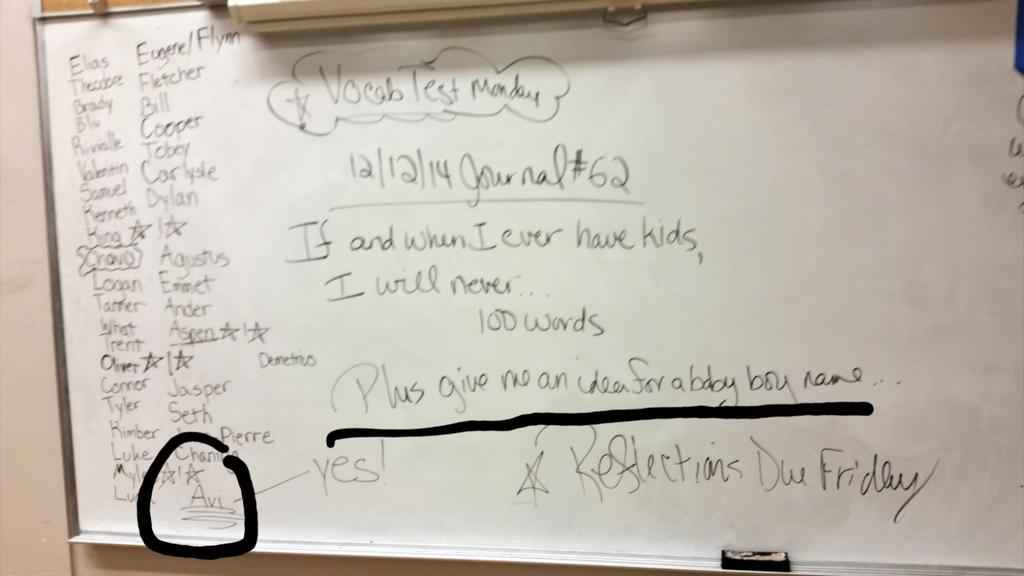 Elias Eugene/Flynn
Theodore Fletcher
Brady Bill
Blu Cooper
Tobey
Valentin Carlyste
Samuel Dylan
Kenneth
King
Chavo Agustus
Logan Emmet
Tanner Ander
What Aspen
Trent
Oliver Demetrius
Connor Jasper
Tyler Seth
Kimber Pierre
Luke
Avi
yes!
Vocab Test Monday
12/12/14 Journal #62
If and when I ever have kids,
I will never...
100 words
Plus give me an idea for a baby boy name...
Reflections Due Friday